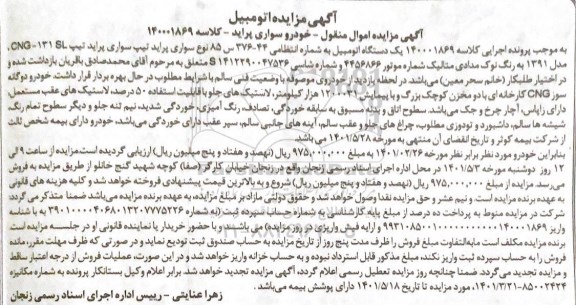 آگهی مزایده اتومبیل
آگهی مزایده اموال منقول - خودرو سواری پراید - کلاسه ۱۴۰۰۰۱۸۶۹
به موجب پرونده اجرایی کلاسه ۱۴۰۰۰۱۸۶۹ یک دستگاه اتومبیل به شماره انتظامی ۴۴-۳۷۶ س ۸۵ نوع سواری پراید تیپ سواری پراید تیپ CNG-۱۳۱ SL،
مدل ۱۳۹۱ به رنگ نوک مدادی متالیک شماره موتور ۴۴۵۶۸۶۶ و شماره شاسی S ۱۴۱۲۲۹۰۰۴۷۵۳۶ متعلق به مرحوم آقای محمدصادق باقریان بازداشت شده و
در اختیار طلبکار (خانم سحر معین) می‌باشد. در لحظه بازدید خودروی موصوفه با وضعیت فنی سالم با شرایط مطلوب در حال بهره بردار قرار داشت. خودرو دوگانه
سوز CNG کارخانه ای با دو مخزن کوچک بزرگ و با پیمایش ۱۳۰ هزار کیلومتر، لاستیک های جلو با قابلیت استفاده ۵۰ درصد، لاستیک های عقب مستعمل،
دارای زاپاس، آچار چرخ و جک می‌باشد. سطوح اتاق و بدنه مسبوق به سابقه خوردگی، تصادف، رنگ آمیزی، خوردگی شدید، نیم تنه جلو و دیگر سطوح تمام رنگ،
شیشه ها سالم، داشبورد و تودوزی مطلوب، چراغ های جلو و عقب سالم، آینه های جانبی سالم، سپر عقب دارای خوردگی می‌باشد، خودرو دارای بیمه شخص ثالث
از شرکت بیمه کوثر و تاریخ انقضای آن منتهی به مورخه ۱۴۰۱/۵/۲۸ می باشد.
بنابراین خودرو مورد نظر برابر نظر مورخه ۱۴۰۱/۰۲/۲۶ به مبلغ ۹۷۵,۰۰۰,۰۰۰ ریال (نهصد و هفتاد و پنج میلیون ریال) ارزیابی گردیده است مزایده از ساعت ۹ الی
۱۲ روز دوشنبه مورخه ۱۴۰۱/۵/۳ در محل اداره اجرای اسناد رسمی زنجان واقع در زنجان خیابان کارگر (صفا) کوچه شهید گنج خانلو از طریق مزایده به فروش
می‌رسد. مزایده از مبلغ ۹۷۵,۰۰۰,۰۰۰ ریال (نهصد و هفتاد و پنج میلیون ریال) شروع و به بالاترین قیمت پیشنهادی فروخته خواهد شد و کلیه هزینه های قانونی
به عهده برنده مزایده است و نیم عشر و حق مزایده نقدا وصول خواهد شد و حقوق دولتی مازاد بر مبلغ مزایده، به عهده برنده مزایده می‌باشد ضمنا متذکر می‌گردد:
شرکت در مزایده منوط به پرداخت ده درصد از مبلغ پایه کارشناسی به شماره حساب سپرده ثبت به شماره ۳۹۰۱۰۰۰۰۴۰۶۸۰۱۳۲۰۷۷۷۵۲۲۶ به با شناسه
واریز ۹۹۳۱۰۸۵۰۰۱۴۰۰۰۱۸۶۹ و ارایه فیش واریزی در روز مزایده می باشند و با حضور خریدار یا نماینده قانونی او در جلسه مزایده است
برنده مزایده مکلف است مابه‌التفاوت مبلغ فروش را ظرف مدت پنج روز از تاریخ مزایده به حساب صندوق ثبت تودیع نماید و در صورتی که ظرف مهلت مقرر، مانده
فروش را به حساب سپرده ثبت واریز نکند، مبلغ مذکور قابل استرداد نبوده و به حساب خزانه واریز خواهد شد و در این صورت، عملیات فروش از درجه اعتبار ساقط
و مزایده تجدید می گردد. ضمنا چنانچه روز مزایده تعطیل رسمی اعلام گردد، آگهی مزایده تجدید خواهد شد. برابر اعلام وکیل بستانکار پرونده به شماره مکانیزه
۸۵۰۰۲۴۲۴-۱۴۰۱/۳/۲۱ مورد مزایده تا تاریخ ۱۴۰۱/۵/۱۸ دارای پوشش بیمه می باشد.
زهرا عنایتی - رییس اداره اجرای اسناد رسمی زنجان